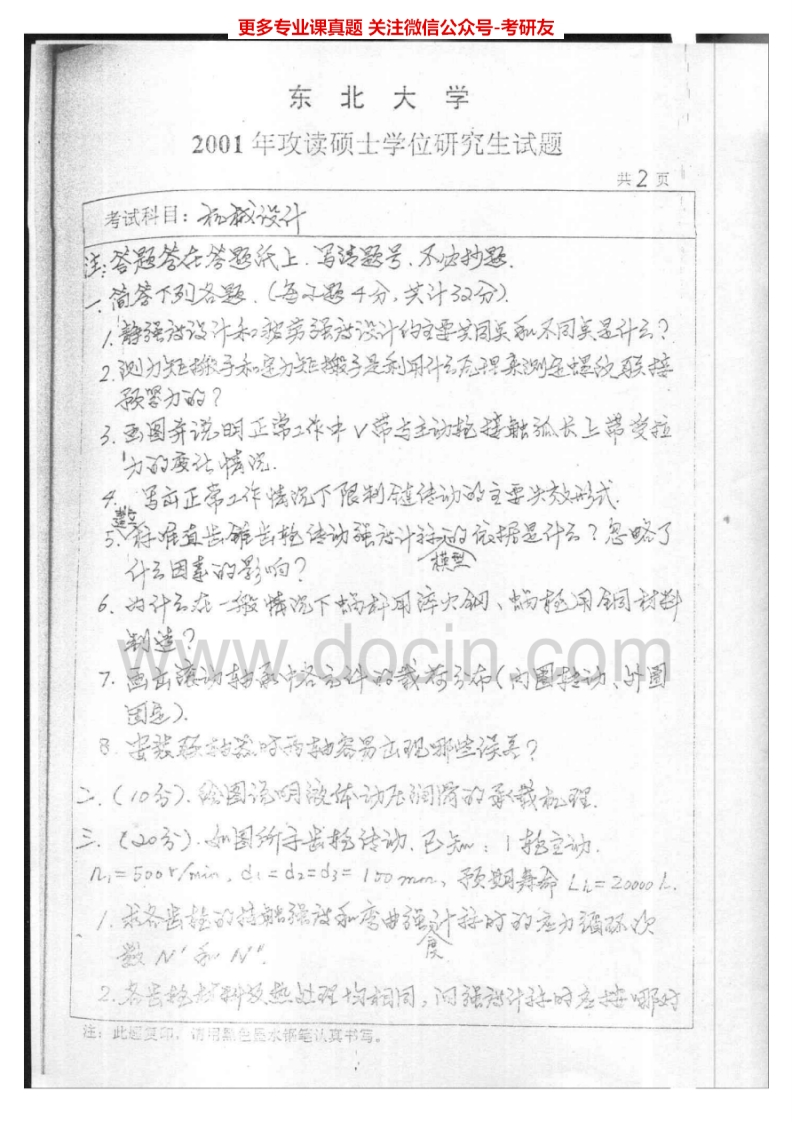 更多专业课真题 关注微信公众号-考研友
东北大学
2001年攻读硕士学位研究生试题
共2页
考试科目：机械设计
注：答题答在答题纸上.写清题号.不必抄题.
一.简答下列各题.(每小题4分,共计32分).
1.静强度设计和疲劳强度设计的主要共同点和不同点是什么？
2.测力矩搬子和定力矩搬子是利用什么原理来测定螺纹联接
预紧力的？
3.画图并说明正常工作中V带与主动轮接触弧长上带受拉
力的变化情况.
4.写出正常工作情况下限制链传动的主要失效形式.
5.标准直齿锥齿轮传动强度计算模型的依据是什么？忽略了
什么因素的影响？
6.为什么在一般情况下蜗杆用淬火钢、蜗轮用铜材料
制造？
www.docin.com
7.画出滚动轴承中各元件的载荷分布(内圈转动、外圈
固定).
8.安装联轴器时两轴容易出现哪些误差？
二.(10分).绘图说明液体动压润滑的承载机理.
三.(20分).如图所示齿轮传动.已知：1轮主动.
n₁=500r/min,d₁=d₂=d₃=100mm,预期寿命Lh=20000h.
1.求各齿轮的接触强度和弯曲强度计算时的应力循环次
数N'和N".
2.各齿轮材料及热处理均相同,问强度计算时应按哪对
注：此题复印，请用黑色墨水钢笔认真书写。